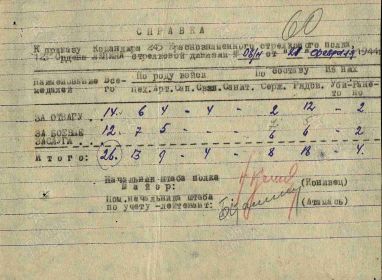 60
СПРАВКА
К приказу Командира 245 Краснознаменного стрелкового полка
123 Ордена ЛЕНИНА стрелковой дивизии № 06/н от "28" февраля 1944
наименование медалей Все-го По роду войск По составу Из них
Пех. Арт. Сап. Связ. Санит. Серж. Рядов. Убитые
ЗА ОТВАГУ 14. 6 4 - 4 - 2 12 - 2
ЗА БОЕВЫЕ ЗАСЛУГИ 12. 7 5 - - - 6 6 - 2
Итого: 26. 13 9 - 4 - 8 18 - 4
Начальник штаба полка
Майор: (Конивец)
Пом. начальника штаба
по учету -лейтенант: (Атамась)